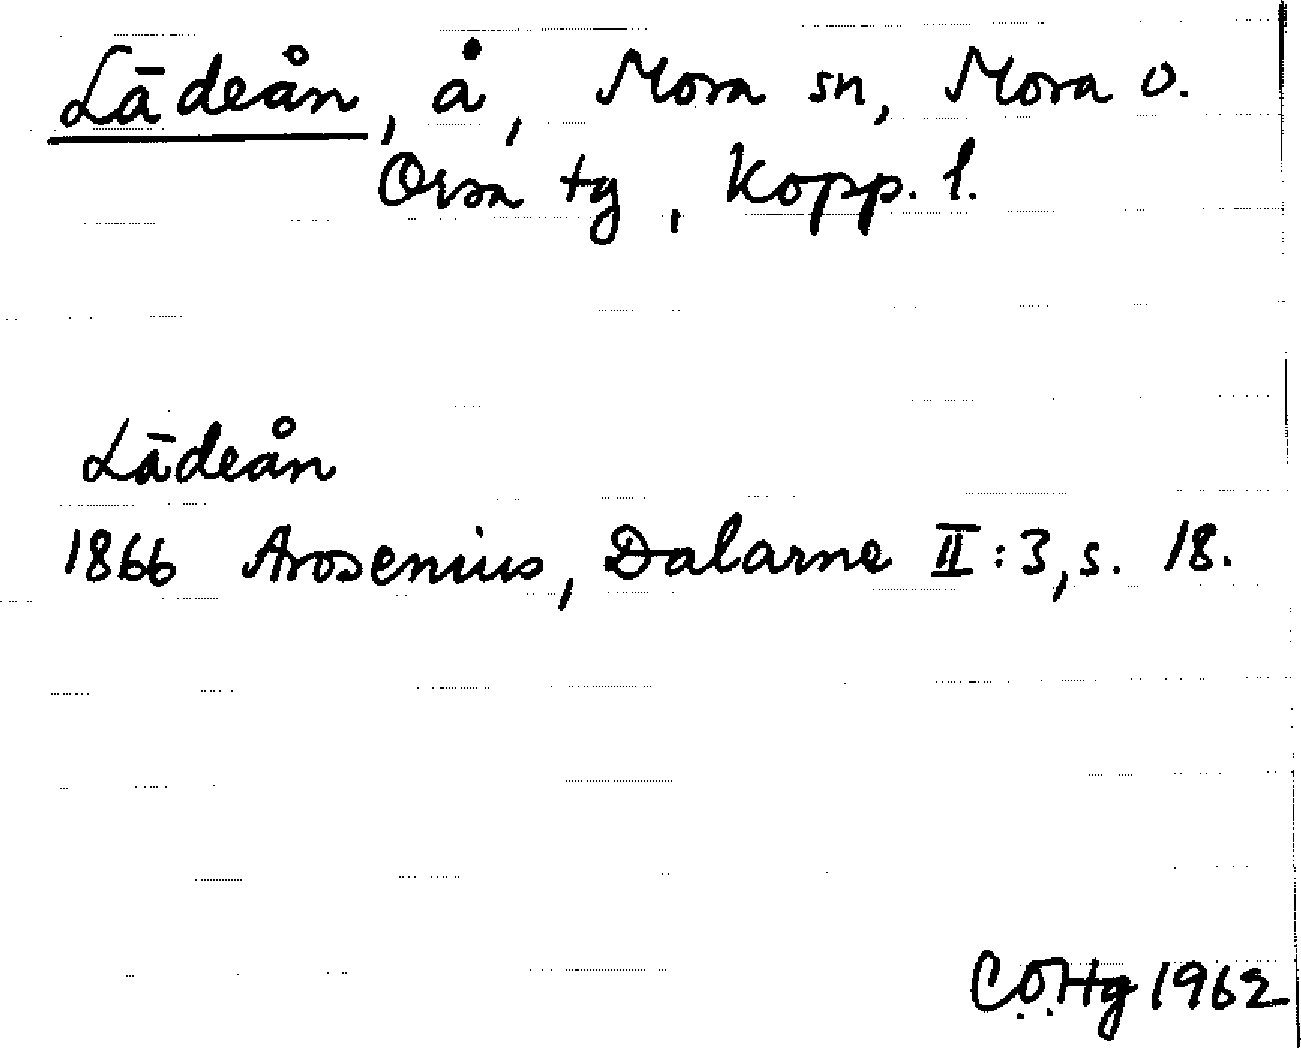 Lädeån, å, Mora sn, Mora o.
Orsa tg, Kopp. l.
Lädeån
1866 Arosenius, Dalarne II:3, s. 18.
CÖHg 1962